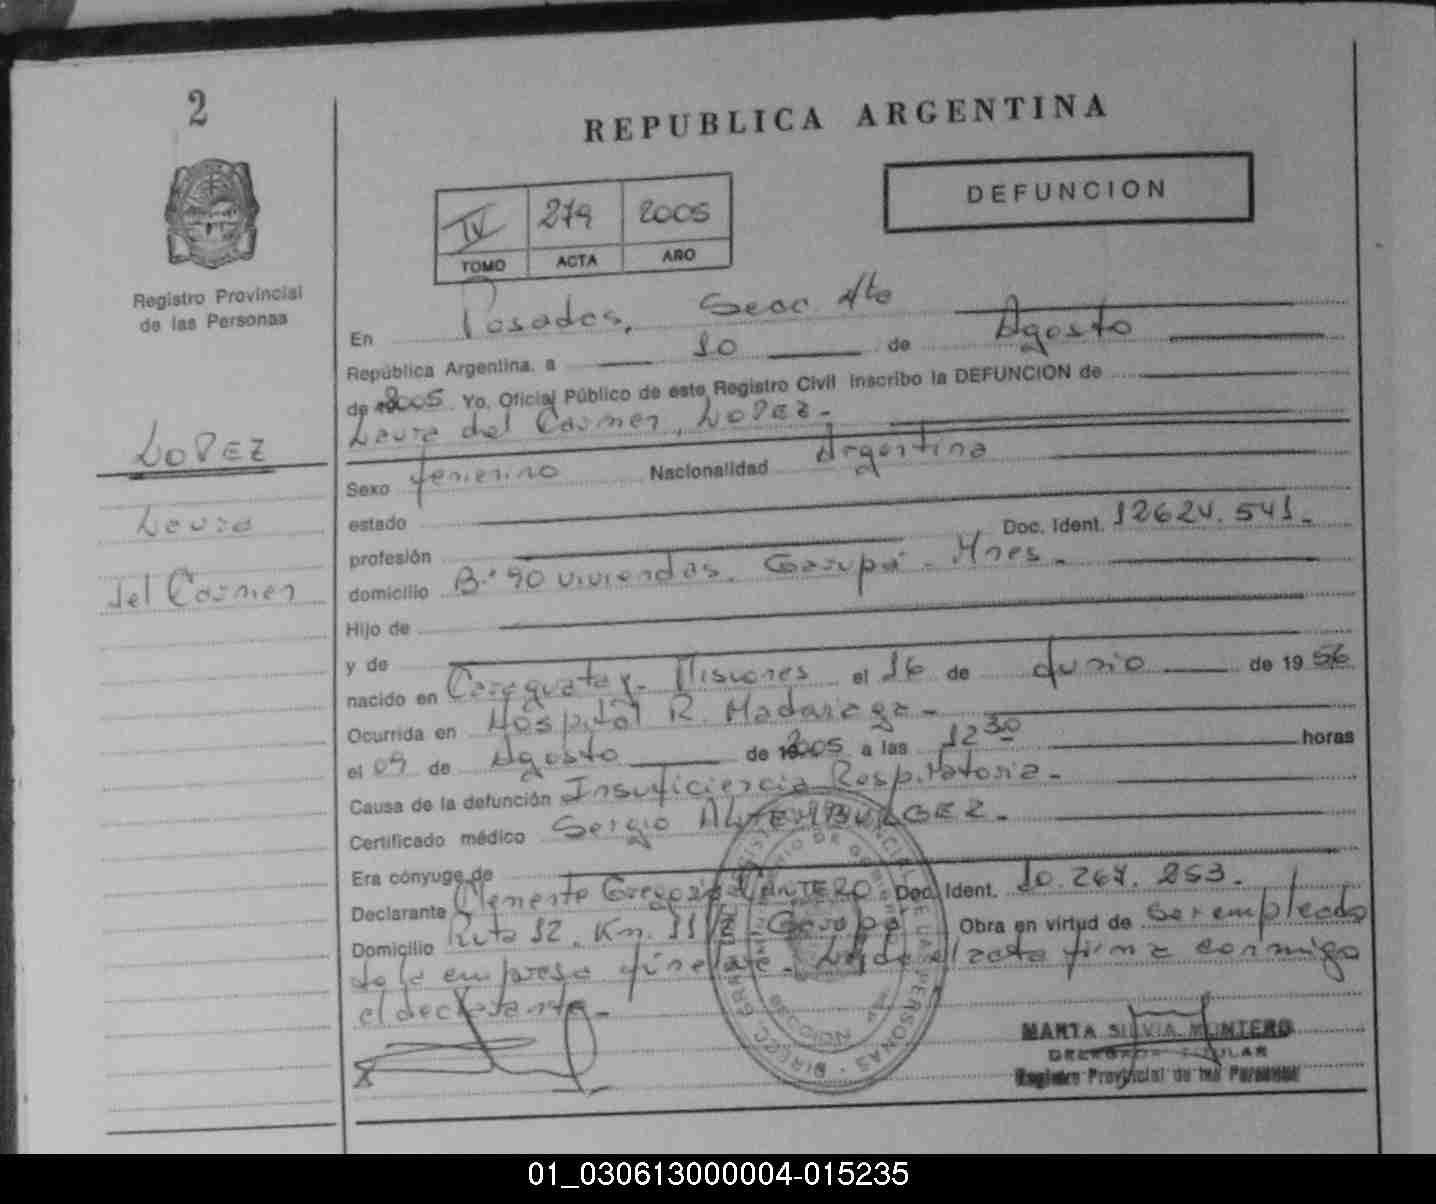 2
REPUBLICA ARGENTINA
DEFUNCION
IV 279 2005
TOMO ACTA AÑO
Registro Provincial
de las Personas
En Posadas, Secc. 4ta
República Argentina, a 10 de Agosto
de 2005 Yo, Oficial Público de este Registro Civil inscribo la DEFUNCION de
Laura del Carmen, LOPEZ.-
LOPEZ
Laura
del Carmen
Sexo femenino Nacionalidad Argentina
estado
Doc. Ident. 12624.541.-
profesión
domicilio B.° 90 viviendas. Garupá - Mnes.-
Hijo de
y de
nacido en Caraguatay - Misiones el 16 de Junio de 1956
Ocurrida en Hospital R. Madariaga.-
el 09 de Agosto de 2005 a las 12 30 horas
Causa de la defunción Insuficiencia Respiratoria.-
Certificado médico Sergio
Era cónyuge de
Declarante Clemente Gregorio Doc. Ident. 10.267.253.
Domicilio Ruta 12. Km. 11 - Garupá Obra en virtud de Ser empleado
de la empresa fúnebre. Leída el acta firma conmigo
el declarante.-
MARTA SILVIA MONTERO
DELEGADA TITULAR
Registro Provincial de las Personas
01_030613000004-015235